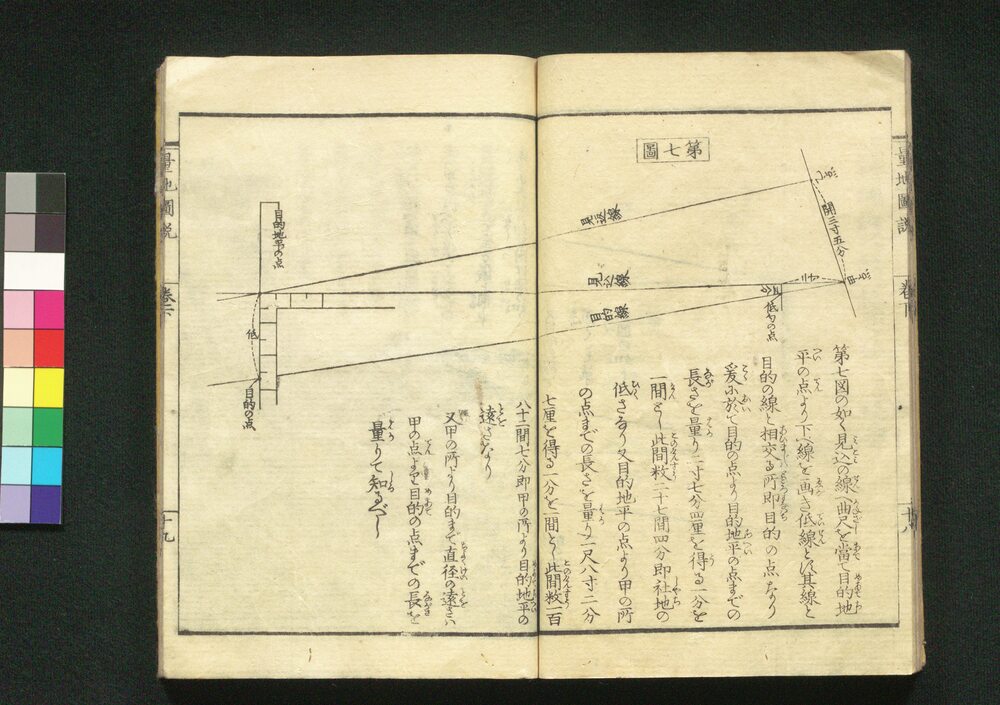 量地圖説
巻下
十八
第七圖
乙
開三寸五分
甲
見返線
見込線
目的線
低サの点
第七図の如く見込の線へ曲尺を當て目的地
平の点より下へ線を画き低線とす其線と
目的の線と相交る所即目的の点なり
爰に於て目的の点より目的地平の点までの
長さを量り二寸七分四厘を得る一分を
一間とし此間数二十七間四分即社地の
低さなり又目的地平の点より甲の所
の点までの長さを量り一尺八寸二分
七厘を得る一分を一間とし此間数一百
八十二間七分即甲の所より目的地平の
遠さなり
又甲の所より目的まで直径の遠さハ
甲の点より目的の点までの長を
量りて知るべし
目的地平の点
低
目的の点
量地圖説
巻下
十九